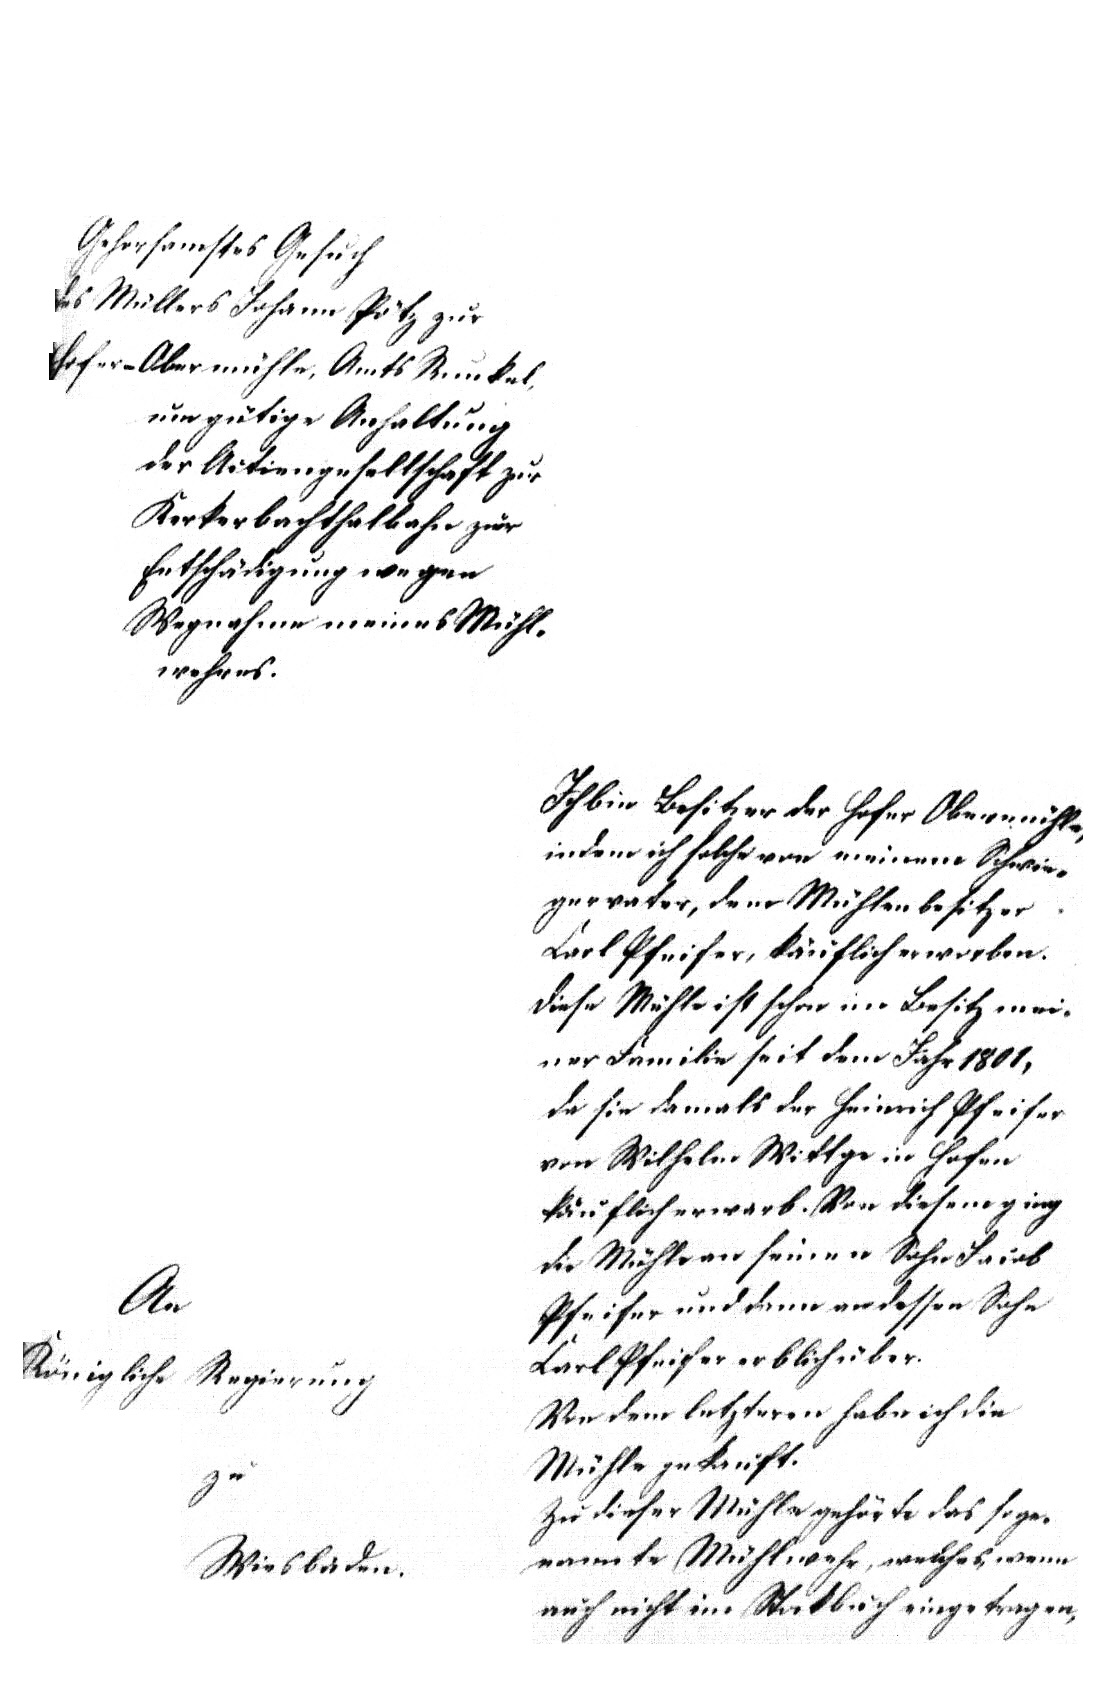 Gehorsamstes Gesuch
des Müllers Johann Pötz zur
Hofer-Obermühle, Amts Runkel,
um gütige Anhaltung
der Actiengesellschaft zur
Kerkerbachthalbahn zur
Entschädigung wegen
Wegnahme meines Mühl-
wehres.
Ich bin Besitzer der Hofer Obermühle,
indem ich solche von meinem Schwie-
gervater, dem Mühlenbesitzer
Carl Pfeifer, käuflich erworben.
Diese Mühle ist schon im Besitz mei-
ner Familie seit dem Jahr 1801,
da sie damals der Heinrich Pfeifer
von Wilhelm Wittge in Hofen
käuflich erwarb. Von diesem ging
die Mühle an seinen Sohn Jacob
Pfeifer und dann an dessen Sohn
Carl Pfeifer erblich über.
Von dem letzteren habe ich die
Mühle gekauft.
Zu dieser Mühle gehörte das soge-
nannte Mühlwehr, welches, wenn
auch nicht im Stockbuch eingetragen,
An
Königliche Regierung
zu
Wiesbaden.